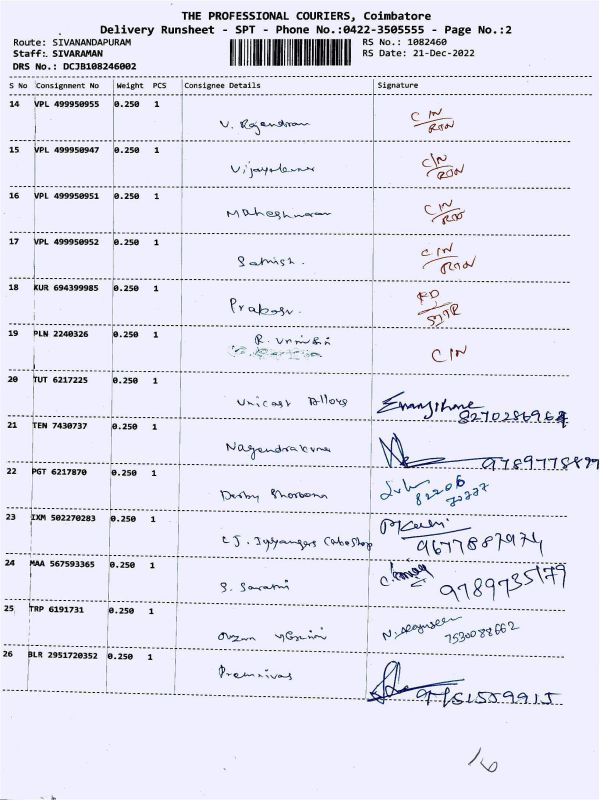 THE PROFESSIONAL COURIERS, Coimbatore
Delivery Runsheet - SPT - Phone No.:0422-3505555 - Page No.:2
Route: SIVANANDAPURAM
RS No.: 1082460
Staff: SIVARAMAN
RS Date: 21-Dec-2022
DRS No.: DCJB108246002
S No Consignment No Weight PCS Consignee Details Signature
14 VPL 499950955 0.250 1 V. Rajendran C/N RTN
15 VPL 499950947 0.250 1 C/N RTN
16 VPL 499950951 0.250 1 Maheshwaran C/N
17 VPL 499950952 0.250 1 Sathish. C/N RTN
18 KUR 694399985 0.250 1
19 PLN 2240326 0.250 1 C/N
20 TUT 6217225 0.250 1 Unicast Alloys
21 TEN 7430737 0.250 1 Nagendrakumar
22 PGT 6217870 0.250 1 Derby
23 IXM 502270283 0.250 1
24 MAA 567593365 0.250 1 S. 9789735179
25 TRP 6191731 0.250 1 7530088662
26 BLR 2951720352 0.250 1 Premnivas
16